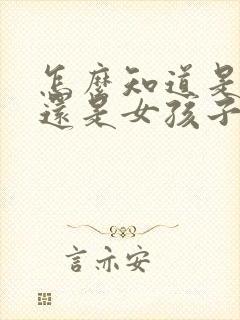 怎麼知道是
還是女孩子
言亦安